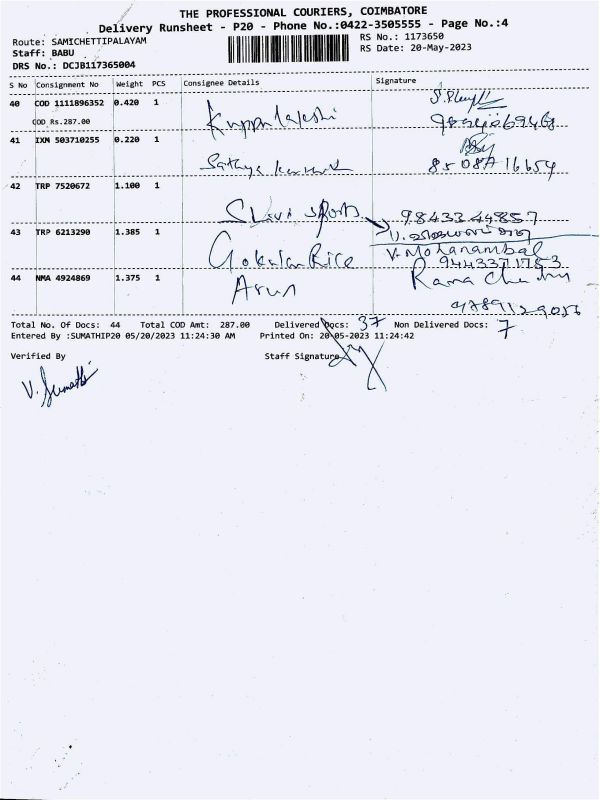 THE PROFESSIONAL COURIERS, COIMBATORE
Delivery Runsheet - P20 - Phone No.:0422-3505555 - Page No.:4
Route: SAMICHETTIPALAYAM
Staff: BABU
DRS No.: DCJB117365004
RS No.: 1173650
RS Date: 20-May-2023
S No Consignment No Weight PCS Consignee Details Signature
40 COD 1111896352 0.420 1
COD Rs.287.00
41 IXM 503710255 0.220 1
Sathya
42 TRP 7520672 1.100 1
Sports 9843344857
43 TRP 6213290 1.385 1
Gokulan Rice V. Mohanambal
9443371753
44 NMA 4924869 1.375 1
Arun Rama
9789129056
Total No. Of Docs: 44 Total COD Amt: 287.00 Delivered Docs: 37 Non Delivered Docs: 7
Entered By :SUMATHIP20 05/20/2023 11:24:30 AM Printed On: 20-05-2023 11:24:42
Verified By Staff Signature
V. Sumathi